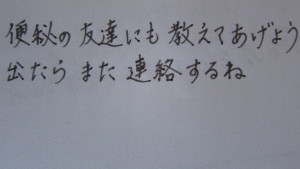 便秘の友達にも教えてあげよう
出たらまた連絡するね